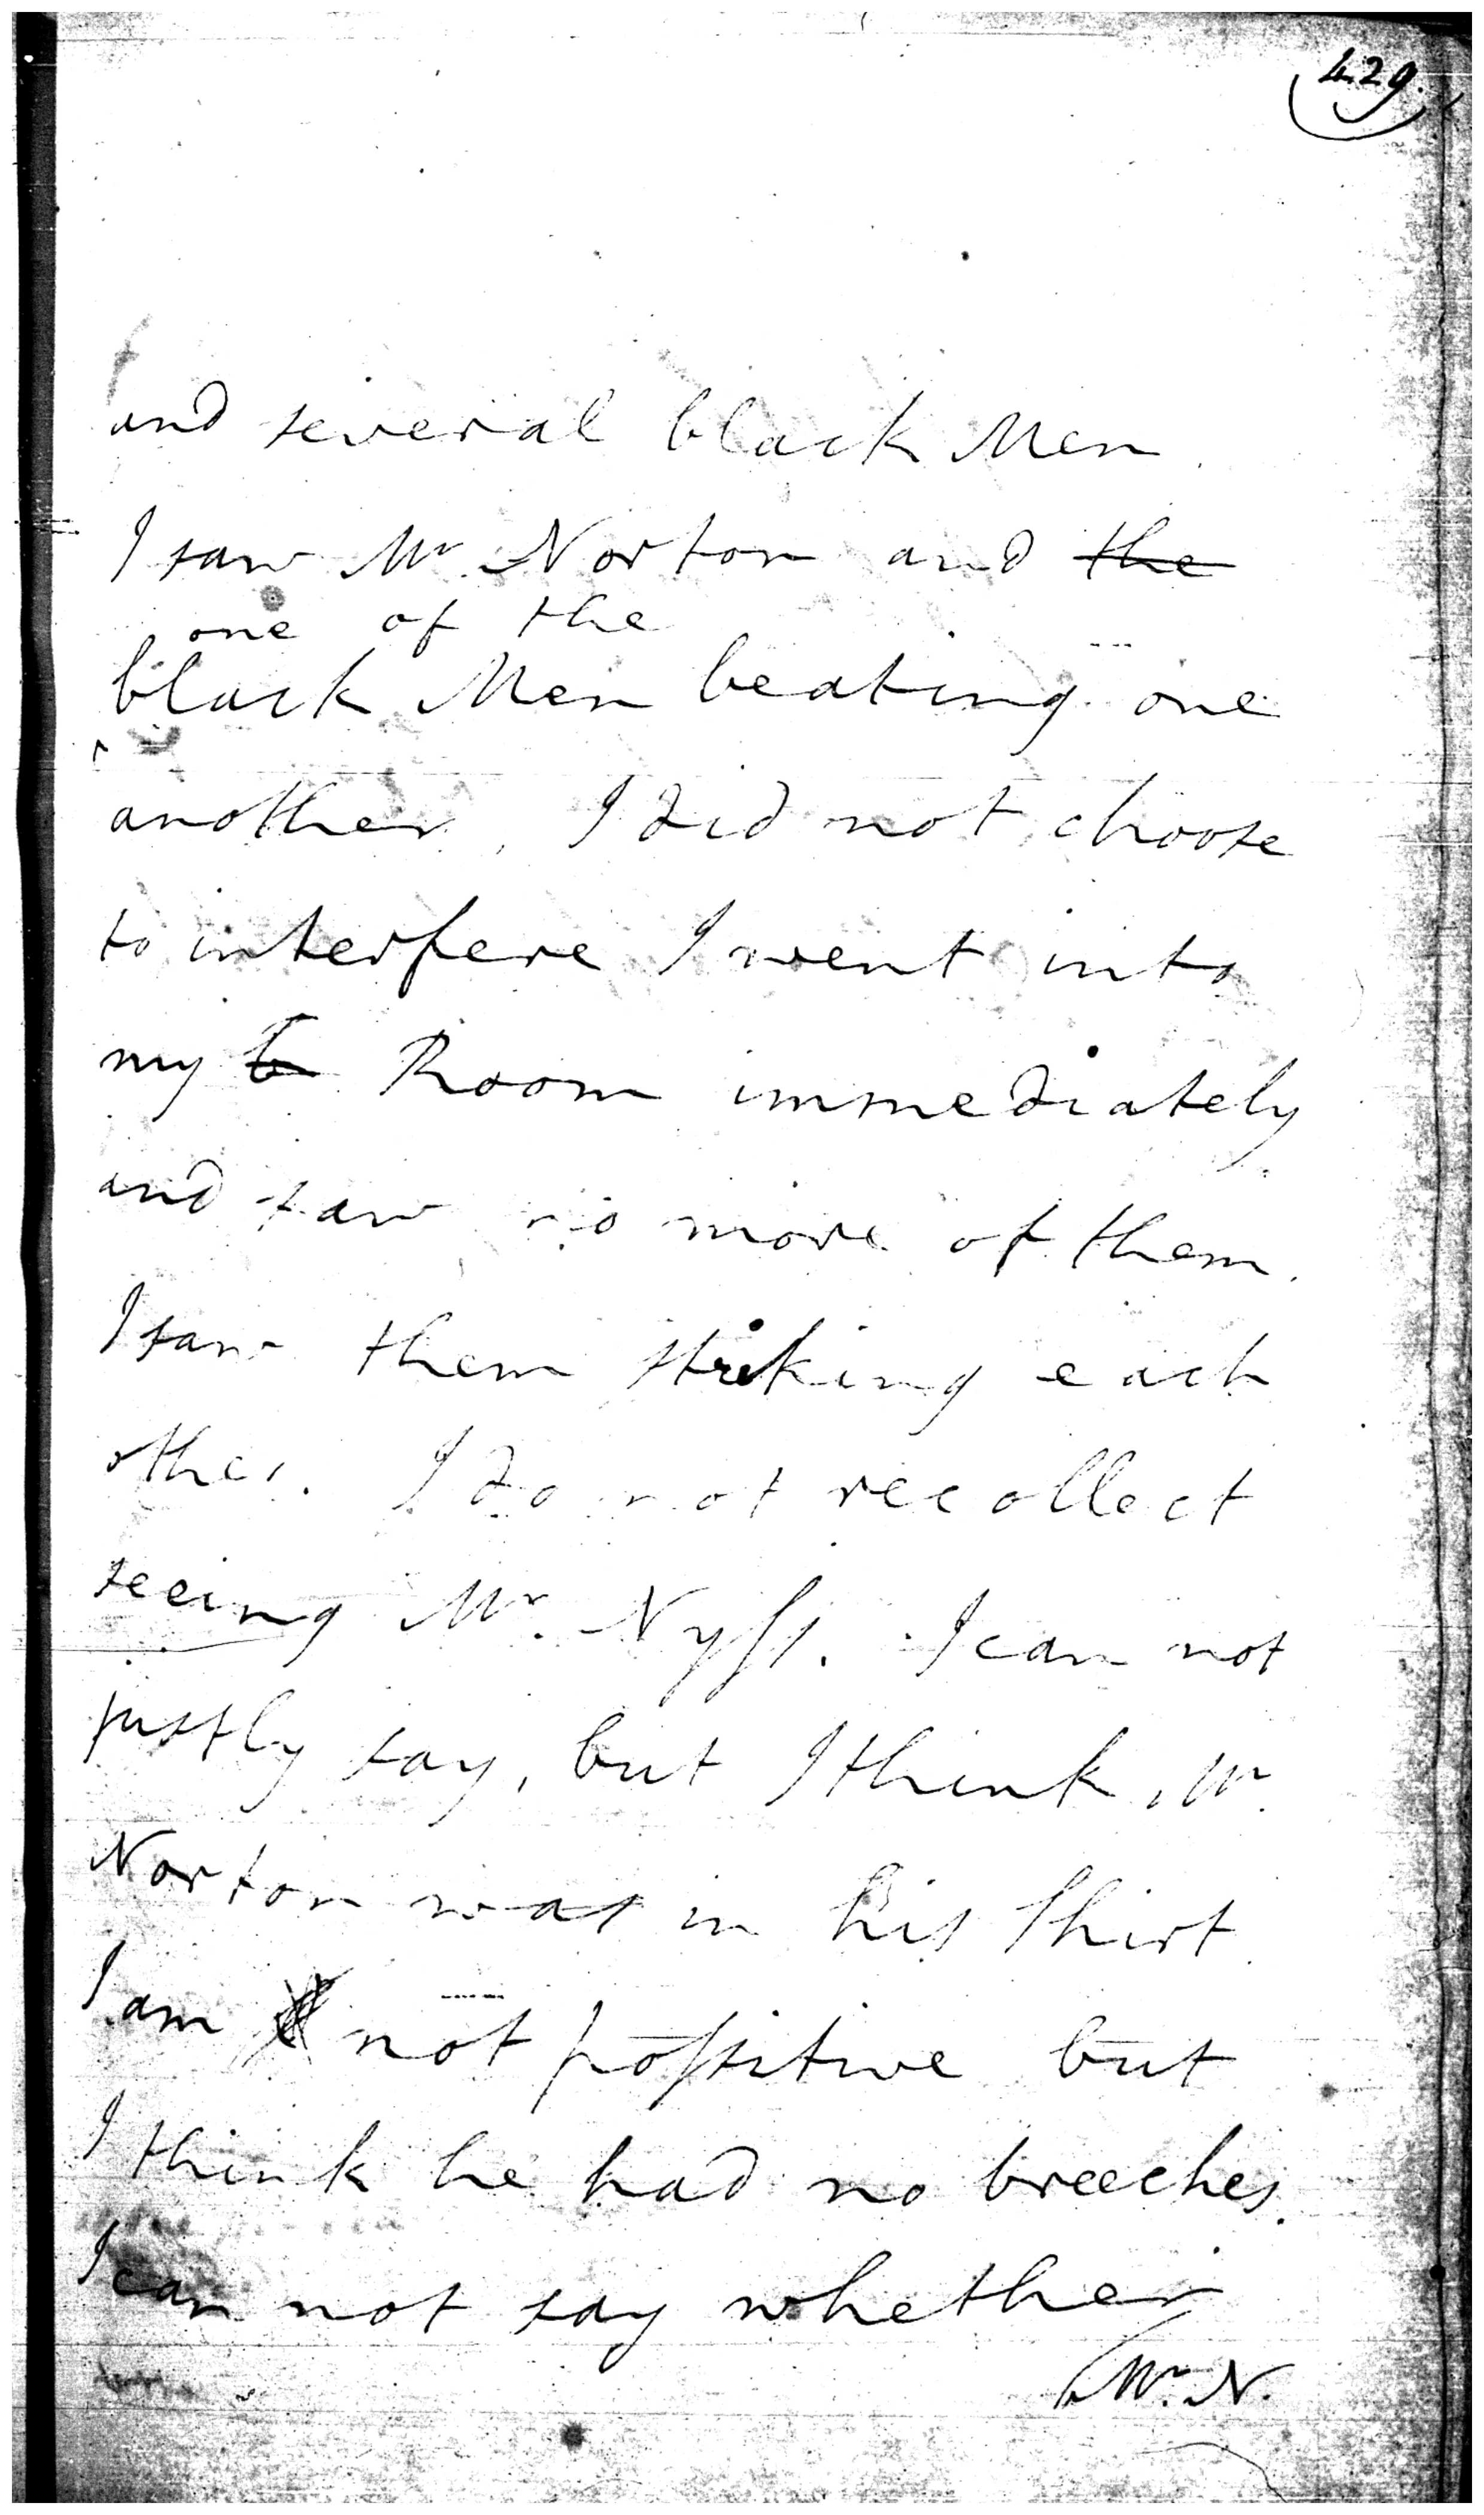 429.
and several black Men.
I saw Mr. Norton and the
one of the
black Men beating one
another, I did not choose
to interfere I went into
my b Room immediately
and saw no more of them.
I saw them striking each
other. I do not recollect
seeing Mr. Nyss. I can not
justly say, but I think, Mr.
Norton was in his Shirt.
I am not possitive but
I think he had no breeches.
I can not say whether
Mr. N.